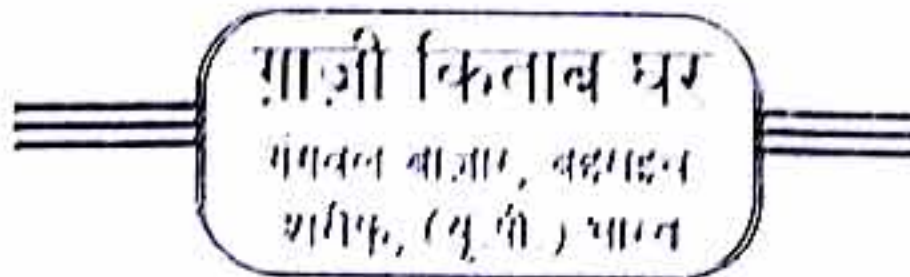 ग़ाज़ी किताब घर
गंगवल बाज़ार, बहराइच
शरीफ, (यू.पी.) भारत